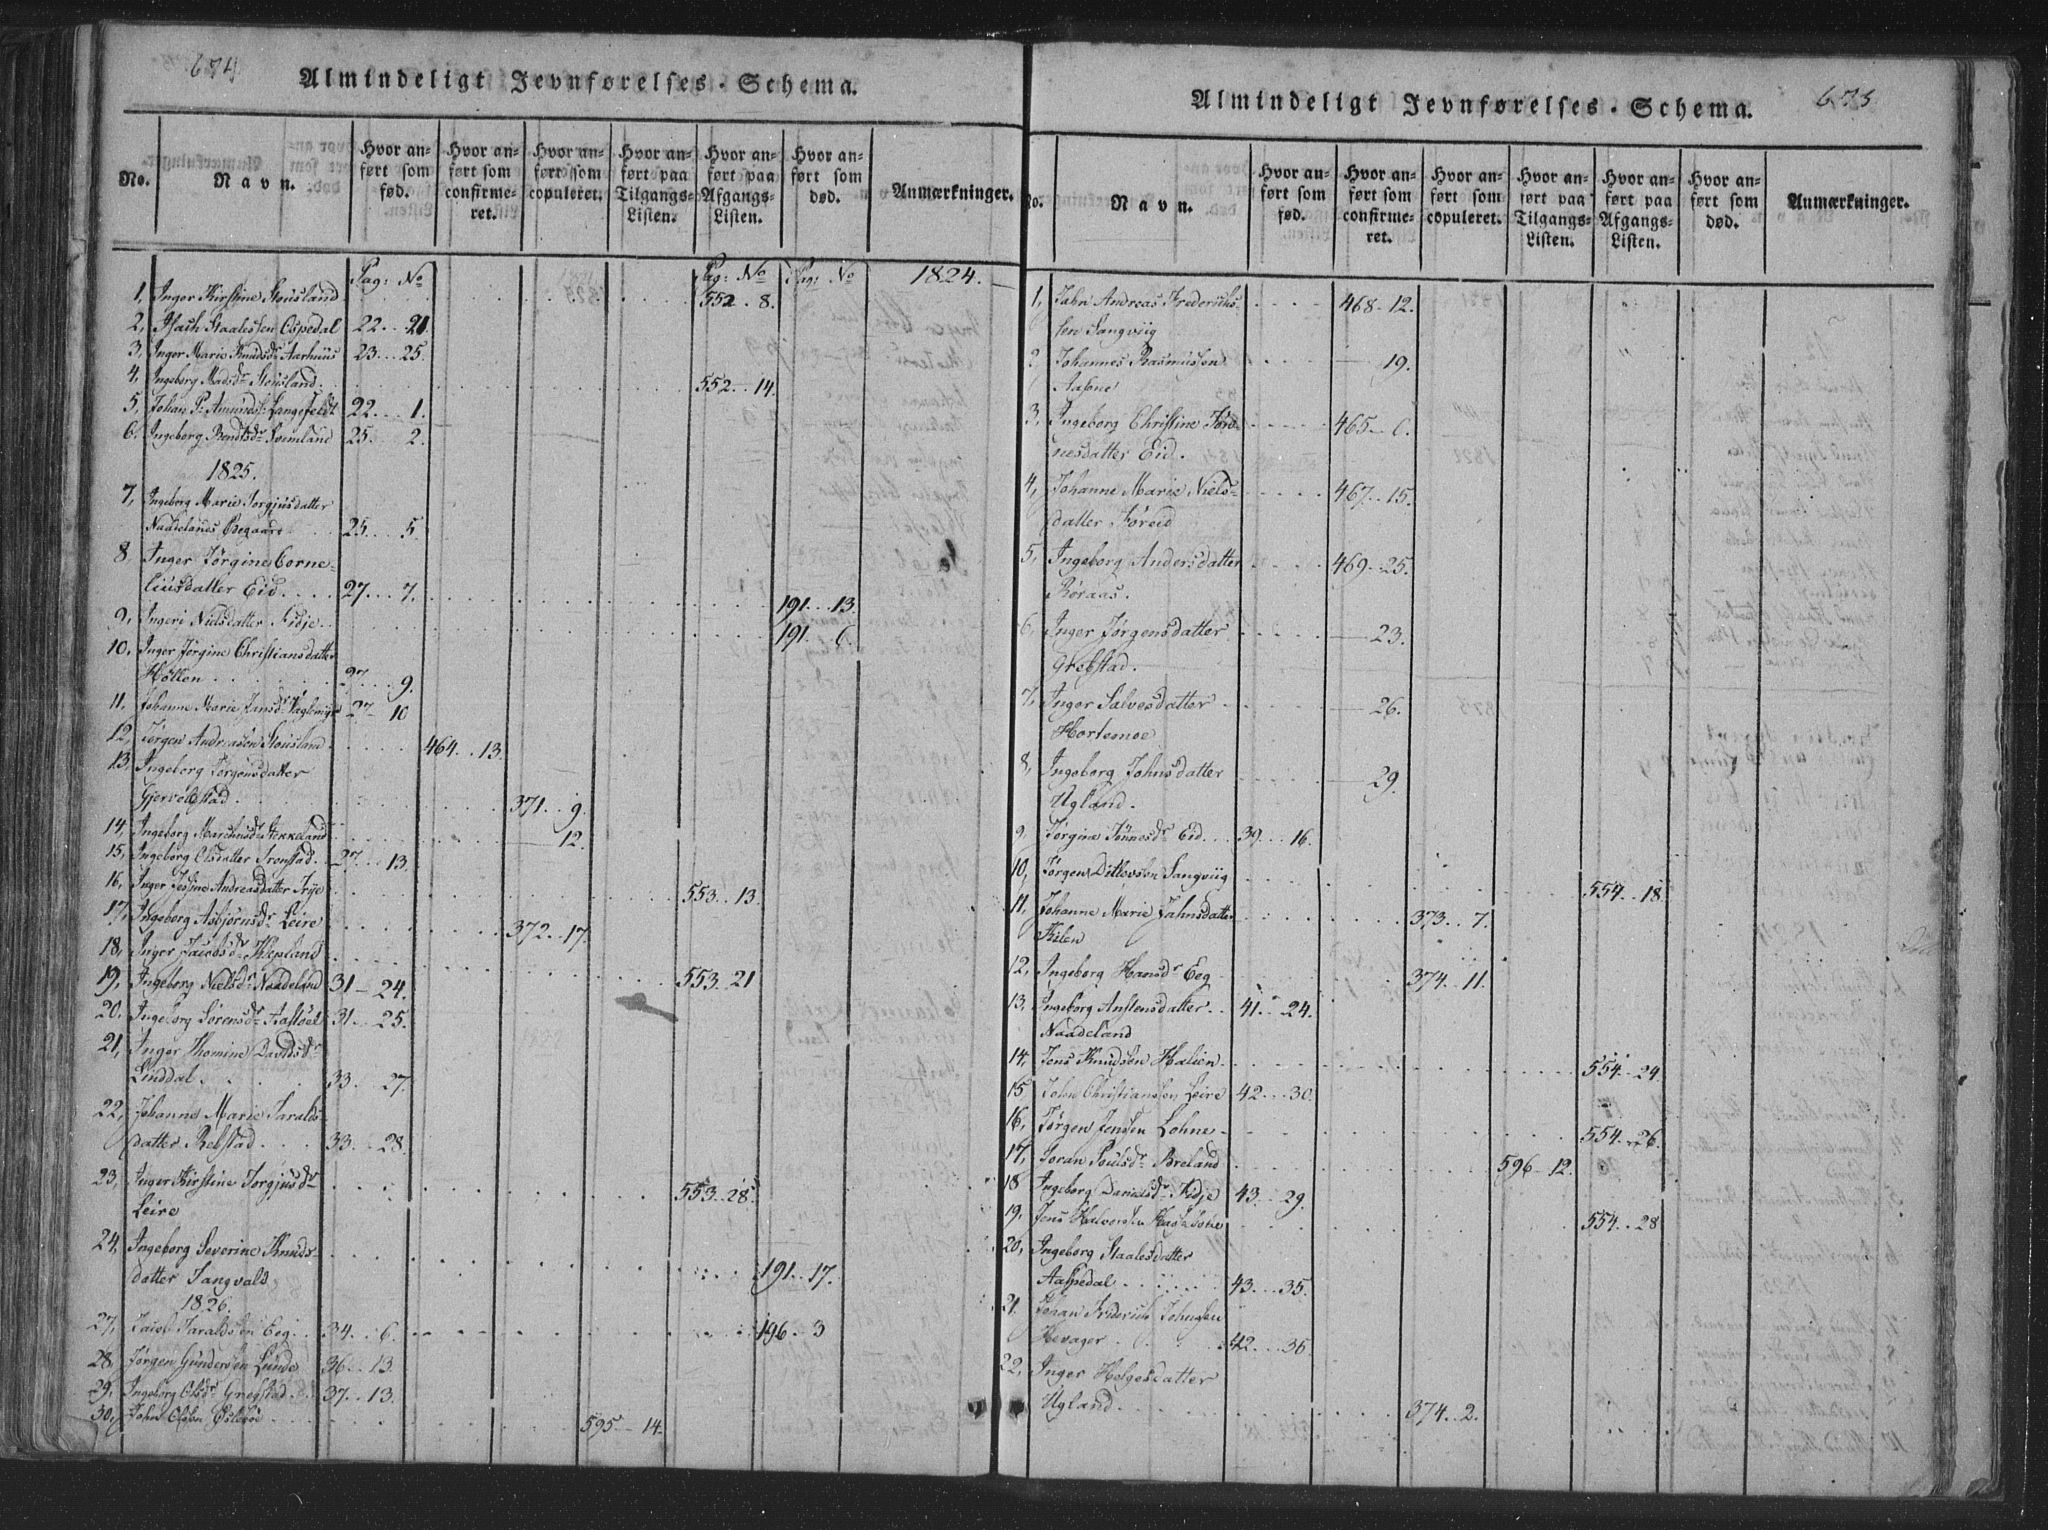 674
Almindeligt Jevnførelses-Schema.
No.
Navn.
Hvor anført som fød.
Hvor anført som confirmeret.
Hvor anført som copuleret.
Hvor anført paa Tilgangs-Listen.
Hvor anført paa Afgangs-Listen.
Hvor anført som død.
Anmærkninger.
Pag: No Pag: No Pag: No 1824.
1, Inger Kirstine Stousland 552. 8.
2, Isach Staalesen Ospedal 22. 21
3, Inger Marie Knudsdr Aarhuus 23. 25.
4, Ingeborg Madsdr Stousland. 552. 14.
5, Johan P. Amunds. Langefeldt 22. 1.
6. Ingeborg Bentsdr 25. 2.
1825.
7, Ingeborg Marie Torgjusdatter
Naadelands Ødegaard 25. 5.
8. Inger Jørgine Corne-
liusdatter Eid. 27. 7. 191. 13.
9, Ingeri Nielsdatter Kidje. 191. 6.
10. Inger Jørgine Christiansdatter
Høllen 27. 9.
11. Johanne Marie Jansdr 27. 10
12, Jørgen Andreasen Stousland 464. 13.
13, Ingeborg Jørgensdatter
Gjervolstad 371. 9.
14, Ingeborg Stokkeland 12.
15, Ingeborg Olsdatter Tronstad. 27. 13.
16, Inger Andreasdatter 553. 13.
17, Ingeborg Asbjørnsdr Leire 372. 17.
18, Inger Jacobsdr Klepland 553. 21
19, Ingeborg Nielsdr Naadeland 31 - 24.
20. Ingeborg Sørensdr 31 - 25.
21, Inger Thomine Davidsdr
Linddal. 33. 27.
22, Johanne Marie Taralds
datter Rebstad. 33. 28.
23, Inger Kirstine Torgjusdr
Leire 553. 28.
24, Ingeborg Severine Knuds-
datter Tangvald 191. 17.
1826.
27, Jacob Taraldsen Eeg. 34. 6. 196. 3
28, Jørgen Gundersen Lunde 36. 13.
29, Ingeborg Olsdr Gregstad. 37. 13.
30, John Olsen 595 - 14.
675
Almindeligt Jevnførelses-Schema.
No.
Navn.
Hvor anført som fød.
Hvor anført som confirmeret.
Hvor anført som copuleret.
Hvor anført paa Tilgangs-Listen.
Hvor anført paa Afgangs-Listen.
Hvor anført som død.
Anmærkninger.
1, Jahn Andreas Frederichs-
sen Langviig 468 - 12.
2, Johannes Rasmussen
19.
3, Ingeborg Christine
nesdatter Eid. 465 - 6.
4, Johanne Marie Niels-
datter Føreid 467. 15.
5, Ingeborg Andersdatter
Røraas. 469 - 25.
6, Inger Jørgensdatter
Grebstad. 23.
7, Inger Salvesdatter
Hortemoe 26.
8, Ingeborg Johnsdatter
Ugland. 29.
9, Jørgine Tønnesdr Eid. 39. 16.
10, Jørgen Ditlevsen Langviig 554. 18.
11, Johanne Marie Jahnsdatter
Kilen 373. 7.
12, Ingeborg Hansdr Eeg 374. 11.
13, Ingeborg Anstensdatter. 41. 24.
Naadeland
14, Jens Knudsen 554. 24.
15 John Christiansen Leire 42. 30.
16, Jørgen Jensen Lohne. 554. 26.
17, Joran Poulsdr Breland 596 - 12.
18 Ingeborg Danielsdr Kidje 43. 29.
19, Jens Halvorsen 554. 28
20, Ingeborg Staalesdatter
Aaspedal 43. 35.
21. Johan Friderich
Hevager 42. 36.
22, Inger Helgesdatter
Ugland. 374. 2.